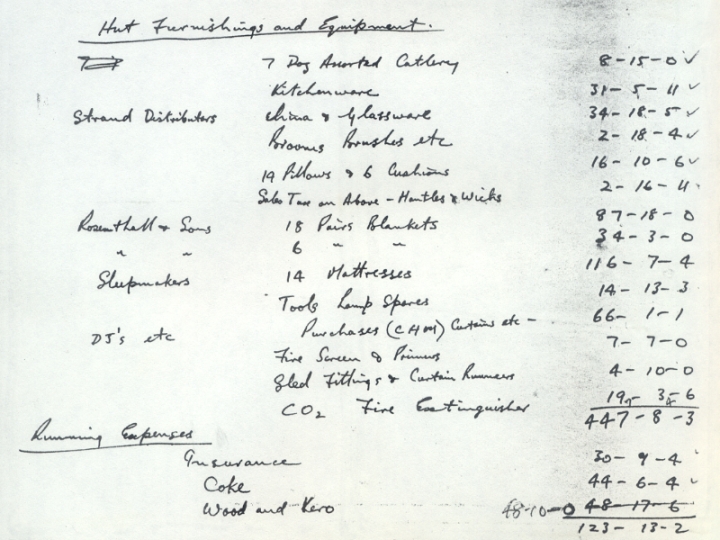 Hut Furnishings and Equipment.
7 Doz Assorted Cutlery 8-15-0 ✓
Kitchenware 31-5-11 ✓
Strand Distributors China & Glassware 34-18-5 ✓
Brooms Brushes etc 2-18-4 ✓
19 Pillows & 6 Cushions 16-10-6 ✓
Sales Tax on Above - Mantles & Wicks 2-16-4
Rosenthall & Sons 18 Pairs Blankets 87-18-0
" " 6 " " 34-3-0
Sleepmakers 14 Mattresses 116-7-4
Tools Lamp Spares 14-13-3
DJ's etc Purchases (CHM) Curtains etc - 66-1-1
Fire Screen & Primus 7-7-0
Sled Fittings & Curtain Runners 4-10-0
CO2 Fire Extinguisher 19-3-6
447-8-3
Running Expenses
Insurance 30-9-4
Coke 44-6-4
Wood and Kero 48-10-0 48-17-6
123-13-2